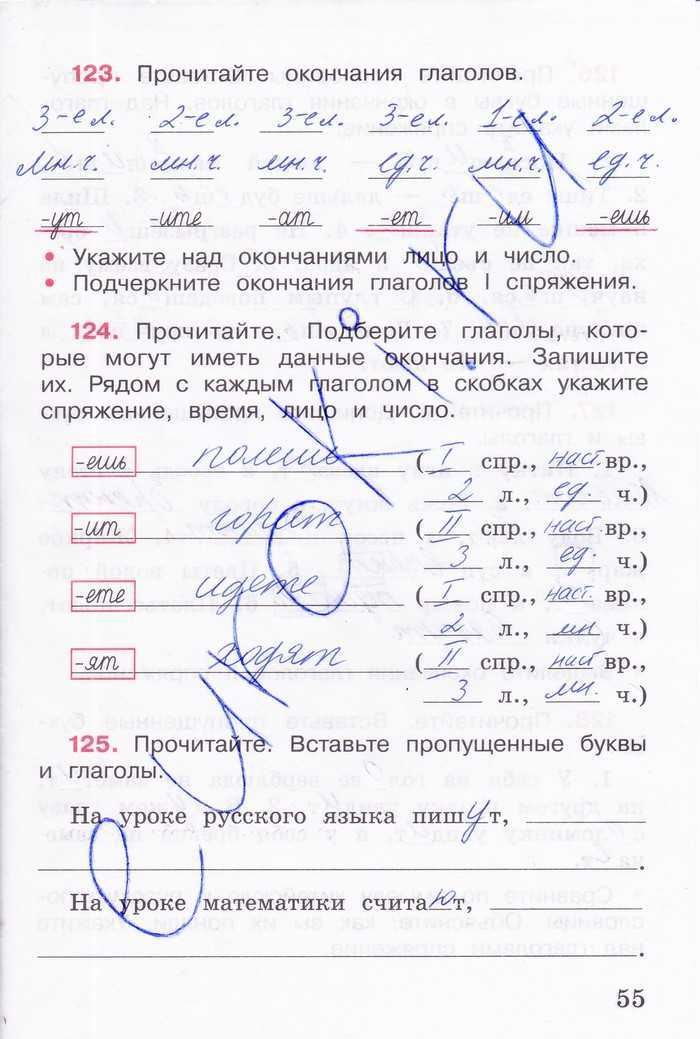 123. Прочитайте окончания глаголов.
3-е л. 2-е л. 3-е л. 3-е л. 1-е л. 2-е л.
мн.ч. мн.ч. мн.ч. ед.ч. мн.ч. ед.ч.
-ут -ите -ат -ет -им -ешь
• Укажите над окончаниями лицо и число.
• Подчеркните окончания глаголов I спряжения.
124. Прочитайте. Подберите глаголы, кото-
рые могут иметь данные окончания. Запишите
их. Рядом с каждым глаголом в скобках укажите
спряжение, время, лицо и число.
-ешь полешь ( I спр., наст. вр.,
2 л., ед. ч.)
-ит горит ( II спр., наст вр.,
3 л., ед. ч.)
-ете идете ( I спр., наст. вр.,
2 л., мн. ч.)
-ят ходят ( II спр., наст вр.,
3 л., мн. ч.)
125. Прочитайте. Вставьте пропущенные буквы
и глаголы.
На уроке русского языка пишут,
На уроке математики считают,
55